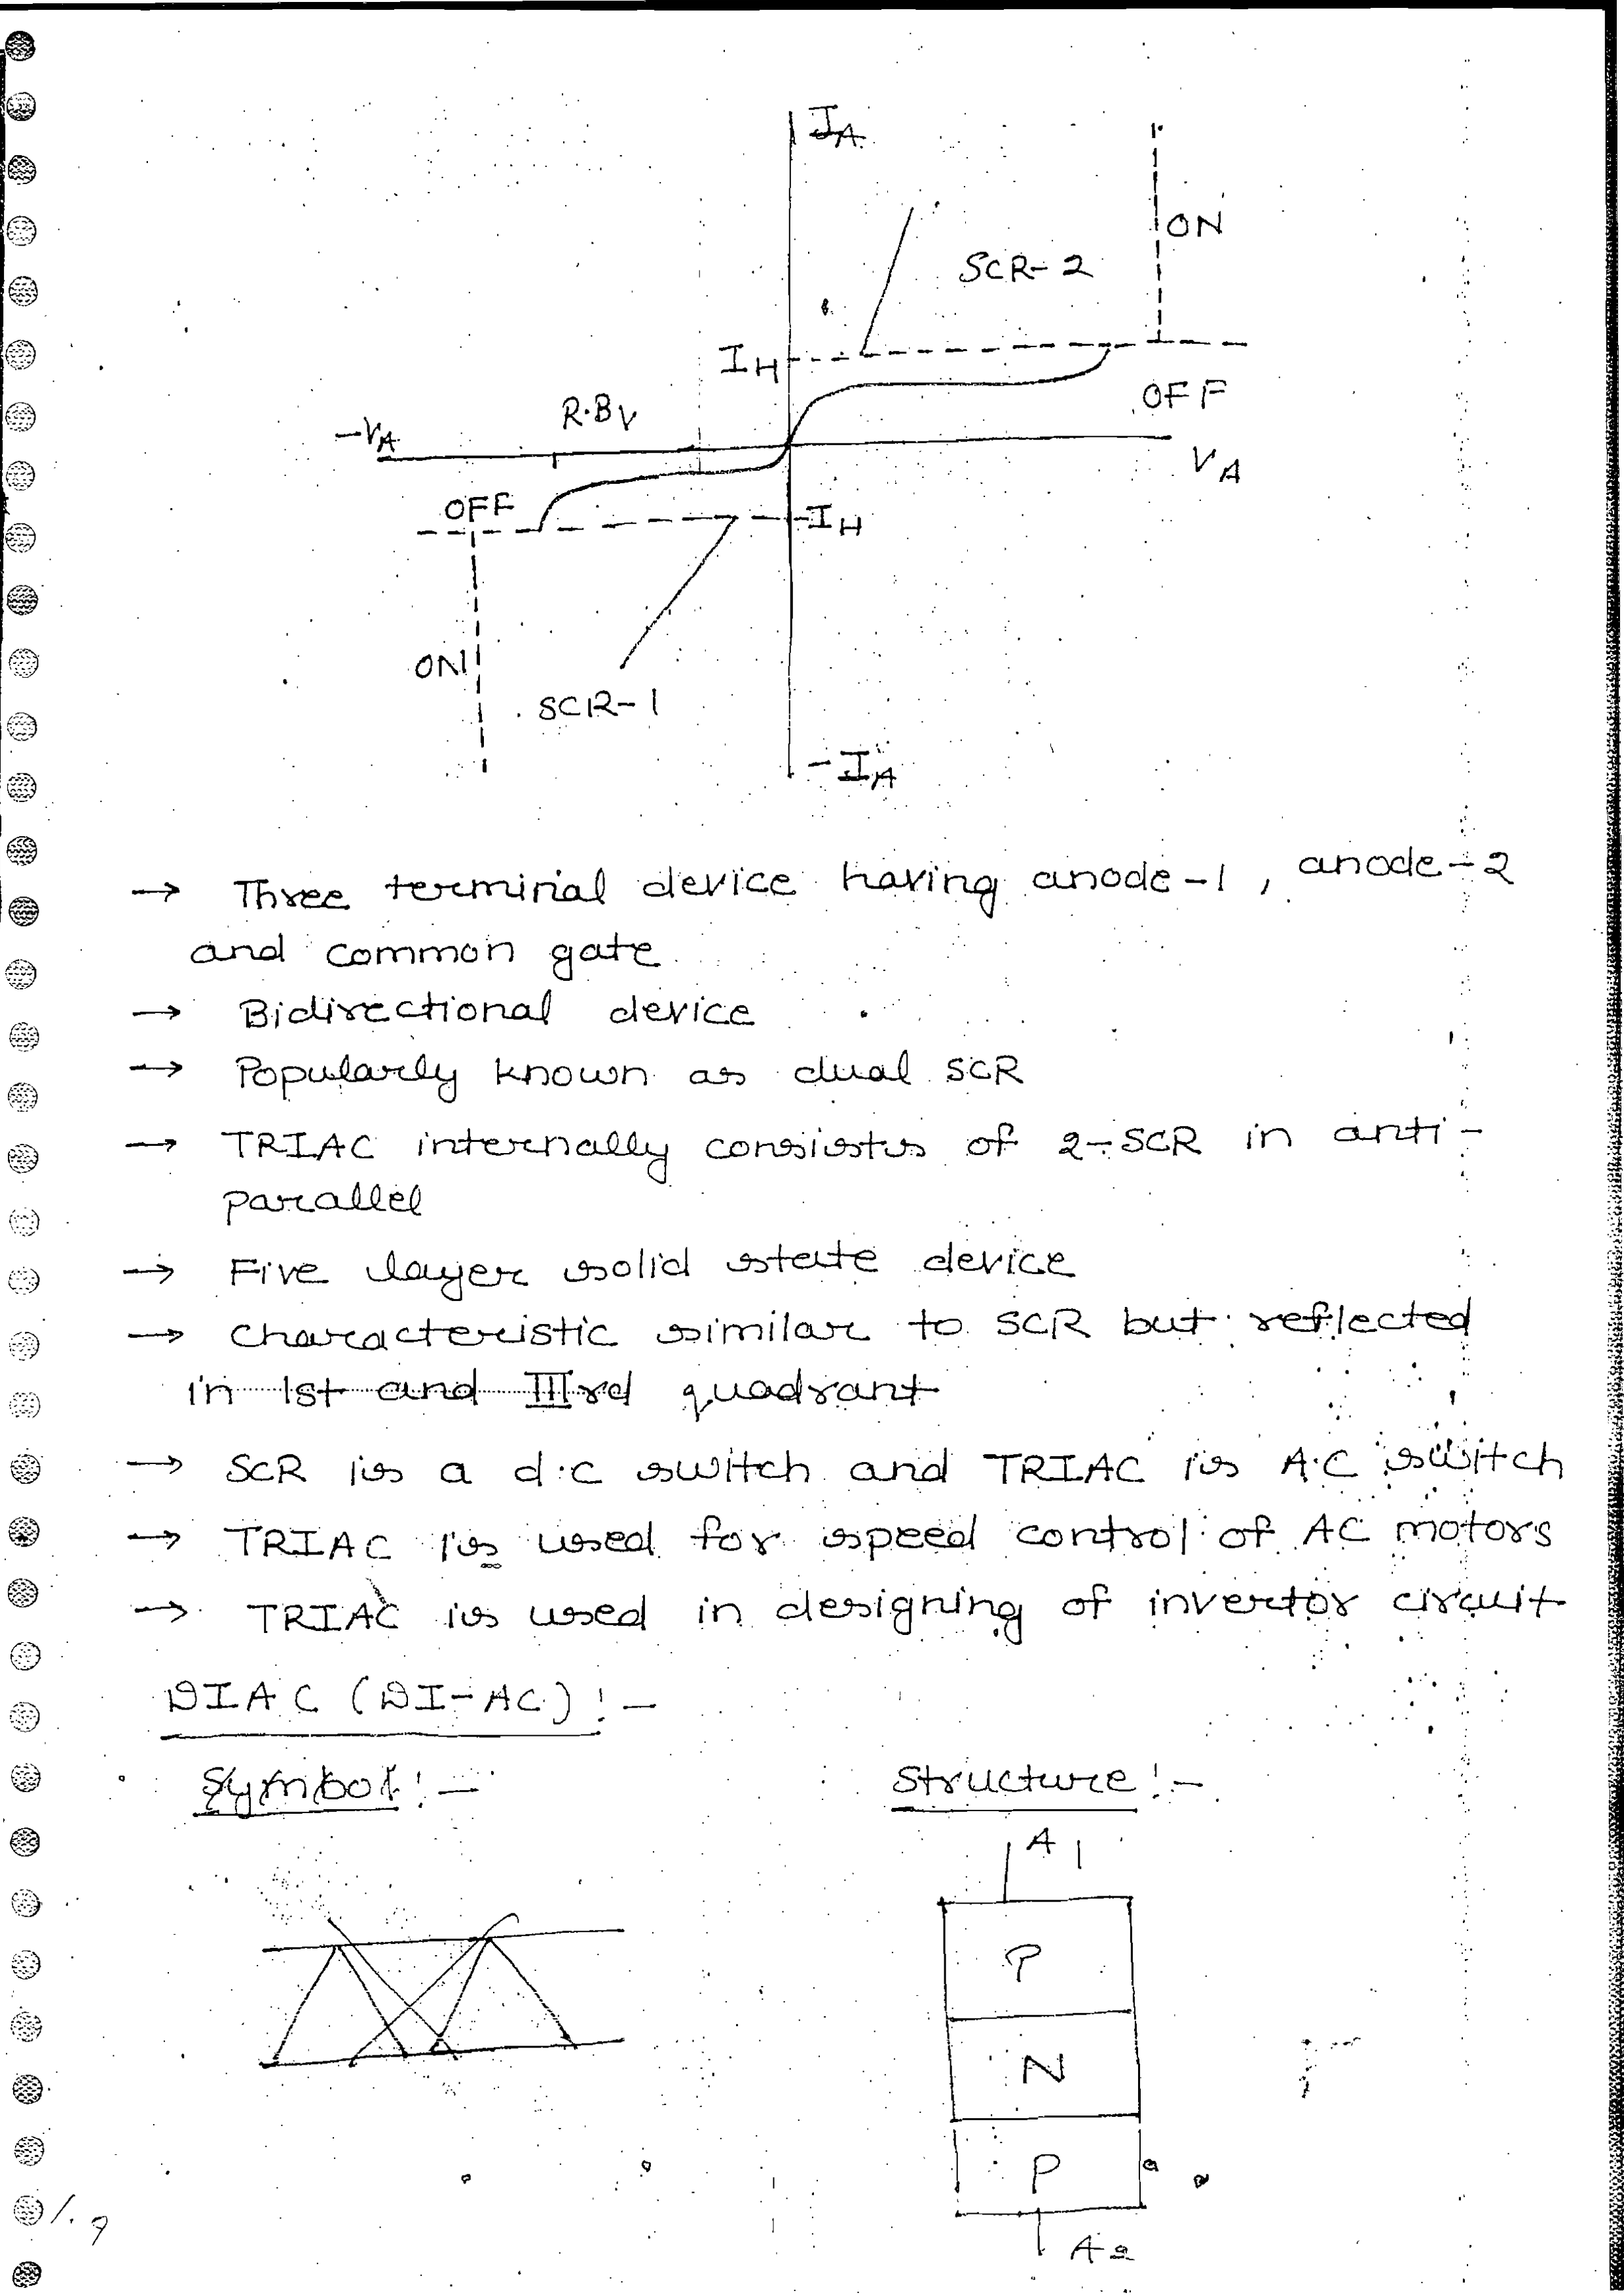 I_A
ON
SCR-2
I_H
OFF
R.B_V
-V_A
V_A
OFF
-I_H
ON
SCR-1
-I_A
→ Three terminal device having anode-1, anode-2
and common gate
→ Bidirectional device
→ Popularly known as dual SCR
→ TRIAC internally consists of 2-SCR in anti-
parallel
→ Five layer solid state device
→ characteristic similar to SCR but reflected
in 1st and IIIrd quadrant
→ SCR is a d.c switch and TRIAC is A.C switch
→ TRIAC is used for speed control of AC motors
→ TRIAC is used in designing of invertor circuit
DIAC (DI-AC) :-
Symbol :- Structure :-
A1
P
N
P
A2